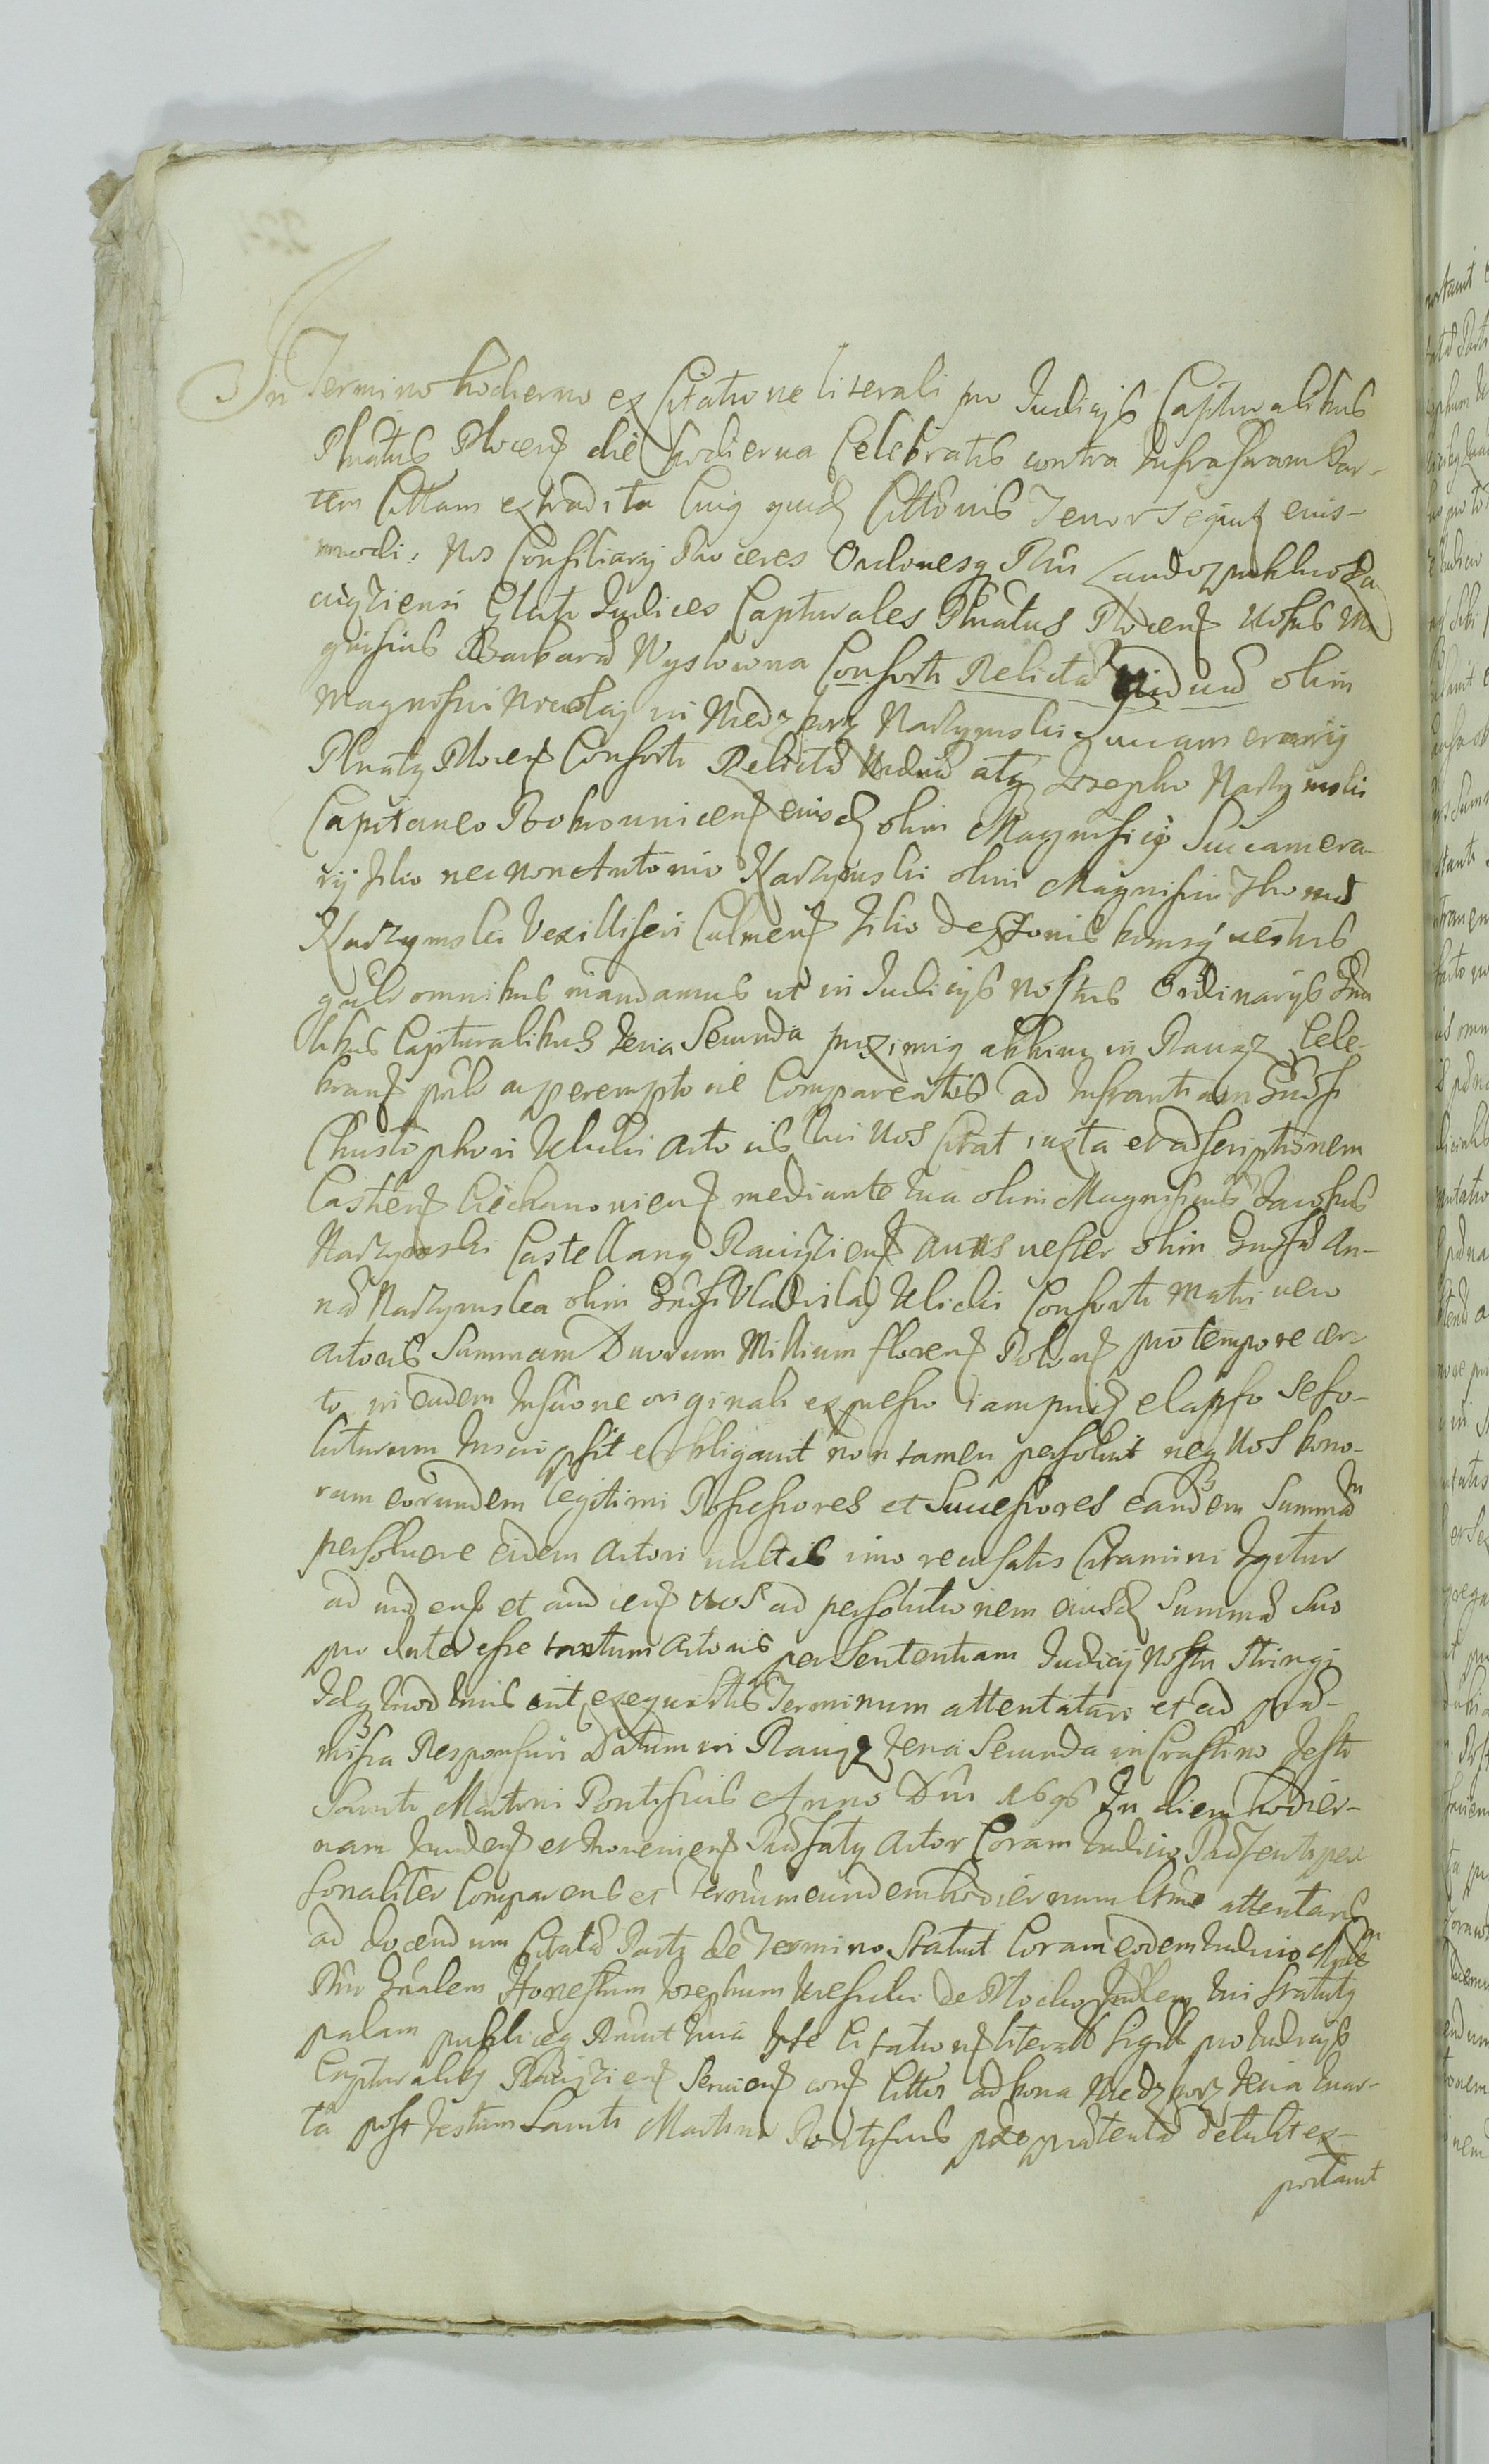 In Termino hodierno ex Citatione literali pro Judicijs Capturalibus
Plnatus Plocens die hodierna Celebratis contra Infrascram Par-
tem Cittam extradita Cuiq quid Cittonis Tenor Sequit eius-
modi: Nos Consiliarij Proceres Ordinesq Pltus Laudo publico Ra
ciąziensi Electi Judices Capturales Plnatus Plocens Vobis Ma
gnificis Barbara Wyslowna Consorti Relicta Vidua olim
Magnifici Nicolaj in Niedzborz Narzymski Succamerarij
Plnatq Plocens Consorti Relicta Vidua atq Josepho Narzymski
Capitaneo Bobrownicens eiusd olim Magnifici Succamera-
rij filio nec non Antonio Narzymski olim Magnifici Thoma
Narzymski Vexilliferi Culmens filio de Psonis bonisq vestris
gnlr omnibus mandamus ut in Judicijs nostris Ordinarijs Gna
libus Capturalibus feria Secunda proxima abhinc in Raciąz Cele-
brans pnlr ac peremptorie Compareatis ad Instantiam Gnosi
Christophori Ulicki Actoris qui Vos Citat iuxta et ad Inscriptionem
Castrens Ciechanoviens mediante qua olim Magnificus Jacobus
Narzymski Castellanq Raciąziens auus vester olim Gnosa An-
na Narzymska olim Gnosi Vladislaj Ulicki Consorti Matri vero
Actoris Summam Duorum Millium florens Polon pro tempore cer-
to in eadem Inscrone originali expresso iam prid elapso se so-
luturum Inscripsit et obligavit non tamen persolvit neq Vos bono-
rum eorundem legitimi Possessores et Successores eandem Summam
persolvere eidem Actori vultis imo recusatis Citamini Igitur
ad videns et audiens Vos ad persolutionem eiusd Summa Suo
pro Interesse tantum Actoris per Sententiam Judicij Nostri Stringi
Idq quod iuris erit exequaturis Terminum attentaturi et ad pra-
missa Responsuri Datum in Raciąz feria Secunda in Crastino festi
Sancti Martini Pontificis Anno Dni 1696 In diem hodier-
nam et provenien Prafatq Actor Coram Judicio Prasenti per
sonaliter Comparens et Terminum eundem hodiernum attentans
ad docendum Citata Partq de Termino Statuit Coram eodem Judicio
Gnalem Honestum Josephum de Plocko qui Statutq
palam publiceq Rnuit quia Ipse Citationes literales Sigill pro Judicijs
Capturalibq Raciąziens Serviens ad bona Niedzborz feria quar-
ta post festum Sancti Martini Pontificis detulit ex-
portavit